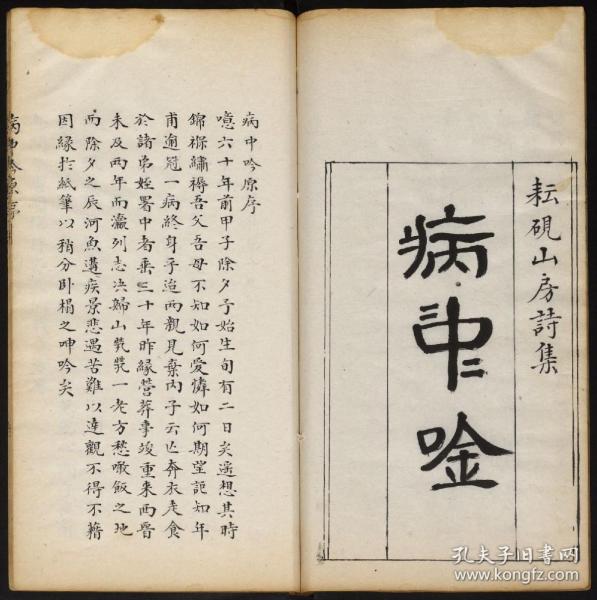 耘硯山房詩集
病中唫
病中吟原序
憶六十年前甲子除夕予始生旬有二日矣遙想其時
錦褓繡褥吾父吾母不知如何愛憐如何期望詎知年
甫逾冠一病終身乎迨両親見棄內子云亡奔衣走食
於諸弟姪署中者垂三十年昨緣營葬事竣重来西晉
未及両年而瀛列志决歸山煢煢一老方愁噉飯之地
而除夕之辰河魚遘疾景悲遇苦難以達觀不得不藉
因緣於紙筆以稍分卧榻之呻吟矣
病中吟原序
孔夫子旧书网
www.kongfz.com